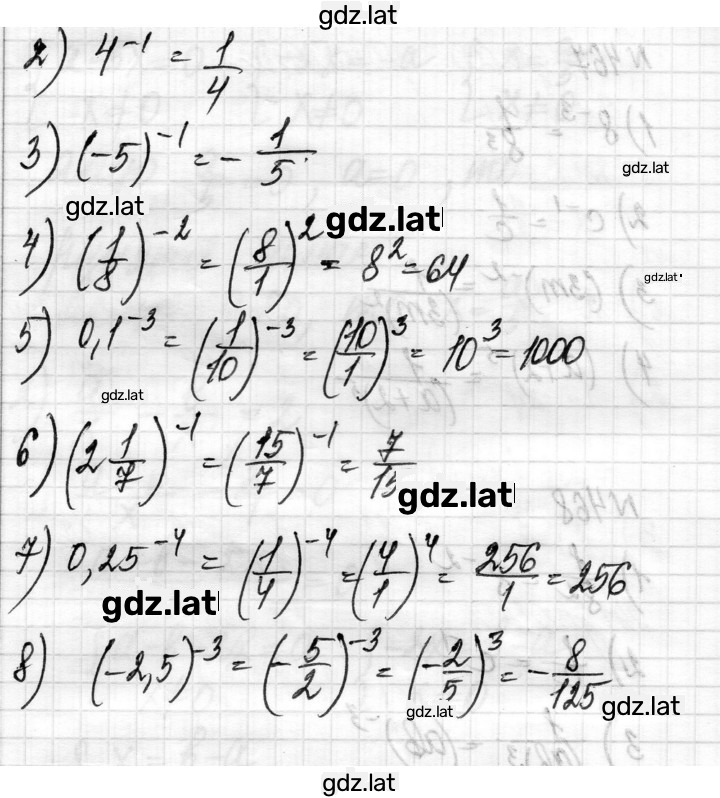 gdz.lat
2) 4^{-1} = \frac{1}{4}
3) (-5)^{-1} = -\frac{1}{5}.
gdz.lat
gdz.lat
gdz.lat
4) (\frac{1}{8})^{-2} = (\frac{8}{1})^{2} = 8^{2} = 64
gdz.lat
5) 0,1^{-3} = (\frac{1}{10})^{-3} = (\frac{10}{1})^{3} = 10^{3} = 1000
gdz.lat
6) (2\frac{1}{7})^{-1} = (\frac{15}{7})^{-1} = \frac{7}{15}
gdz.lat
7) 0,25^{-4} = (\frac{1}{4})^{-4} = (\frac{4}{1})^{4} = \frac{256}{1} = 256
gdz.lat
8) (-2,5)^{-3} = (-\frac{5}{2})^{-3} = (-\frac{2}{5})^{3} = -\frac{8}{125}
gdz.lat
gdz.lat
gdz.lat